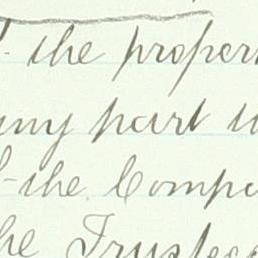 the proper
any part
the Compa
he Trustees